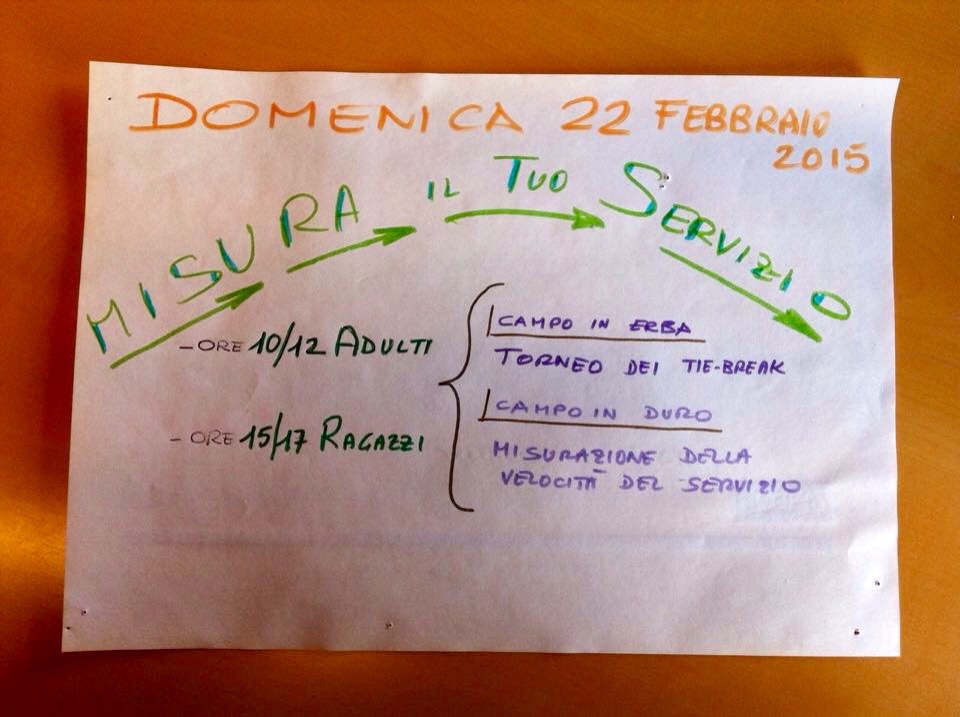 DOMENICA 22 FEBBRAIO
2015
MISURA IL TUO SERVIZIO
- ORE 10/12 ADULTI
- ORE 15/17 RAGAZZI
CAMPO IN ERBA
TORNEO DEI TIE-BREAK
CAMPO IN DURO
MISURAZIONE DELLA
VELOCITÀ DEL SERVIZIO